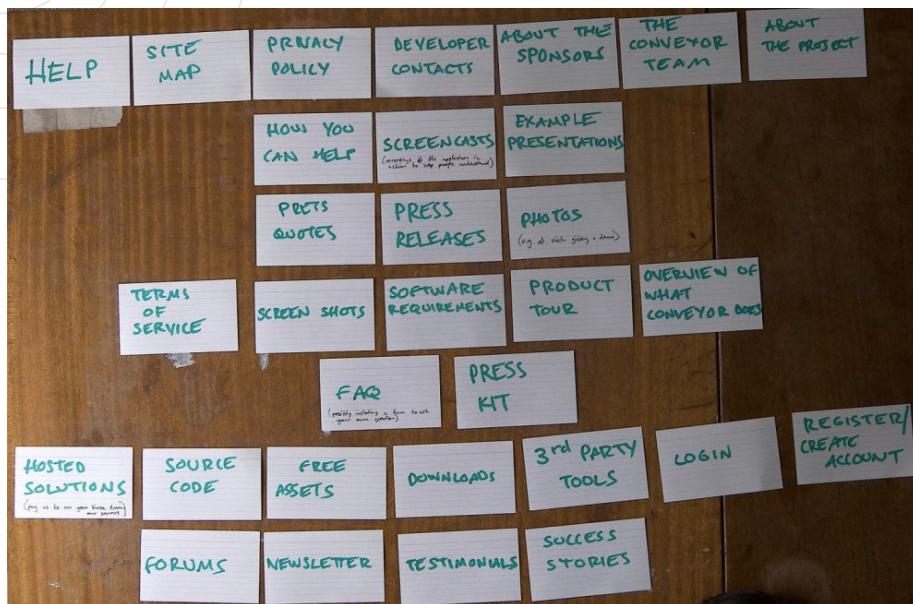 HELP
SITE
MAP
PRIVACY
POLICY
DEVELOPER
CONTACTS
ABOUT THE
SPONSORS
THE
CONVEYOR
TEAM
ABOUT
THE PROJECT
HOW YOU
CAN HELP
SCREENCASTS
(recordings of the application in
action to help people understand)
EXAMPLE
PRESENTATIONS
PRESS
QUOTES
PRESS
RELEASES
PHOTOS
(e.g. of giving a demo)
TERMS
OF
SERVICE
SCREEN SHOTS
SOFTWARE
REQUIREMENTS
PRODUCT
TOUR
OVERVIEW OF
WHAT
CONVEYOR DOES
FAQ
(possibly including a form to ask
your own question)
PRESS
KIT
HOSTED
SOLUTIONS
(pay us to run your from
our servers)
SOURCE
CODE
FREE
ASSETS
DOWNLOADS
3rd PARTY
TOOLS
LOGIN
REGISTER/
CREATE
ACCOUNT
FORUMS
NEWSLETTER
TESTIMONIALS
SUCCESS
STORIES